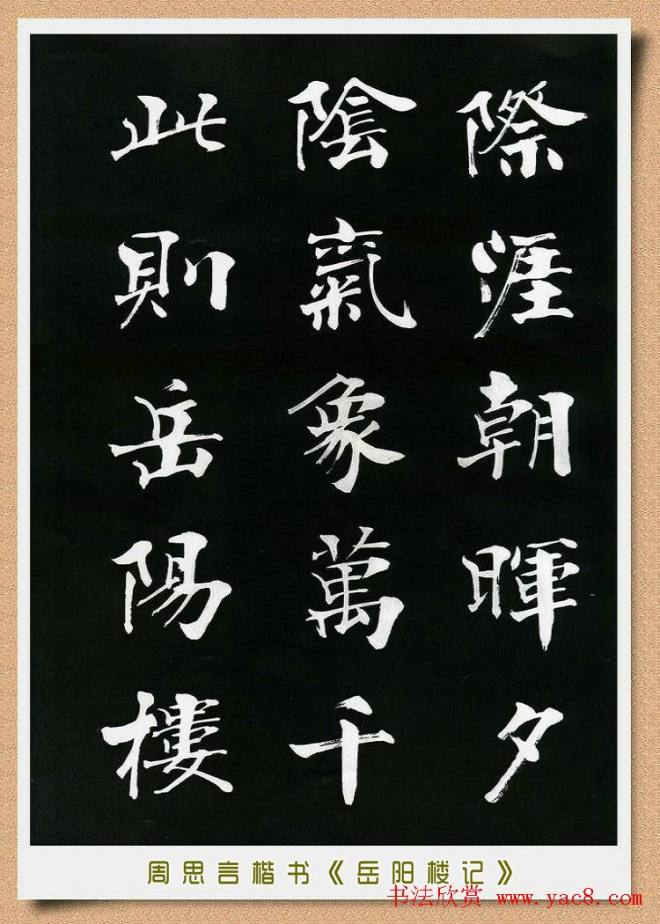 際涯朝暉夕
陰氣象萬千
此則岳陽樓
周思言楷书《岳阳楼记》
书法欣赏 www.yac8.com